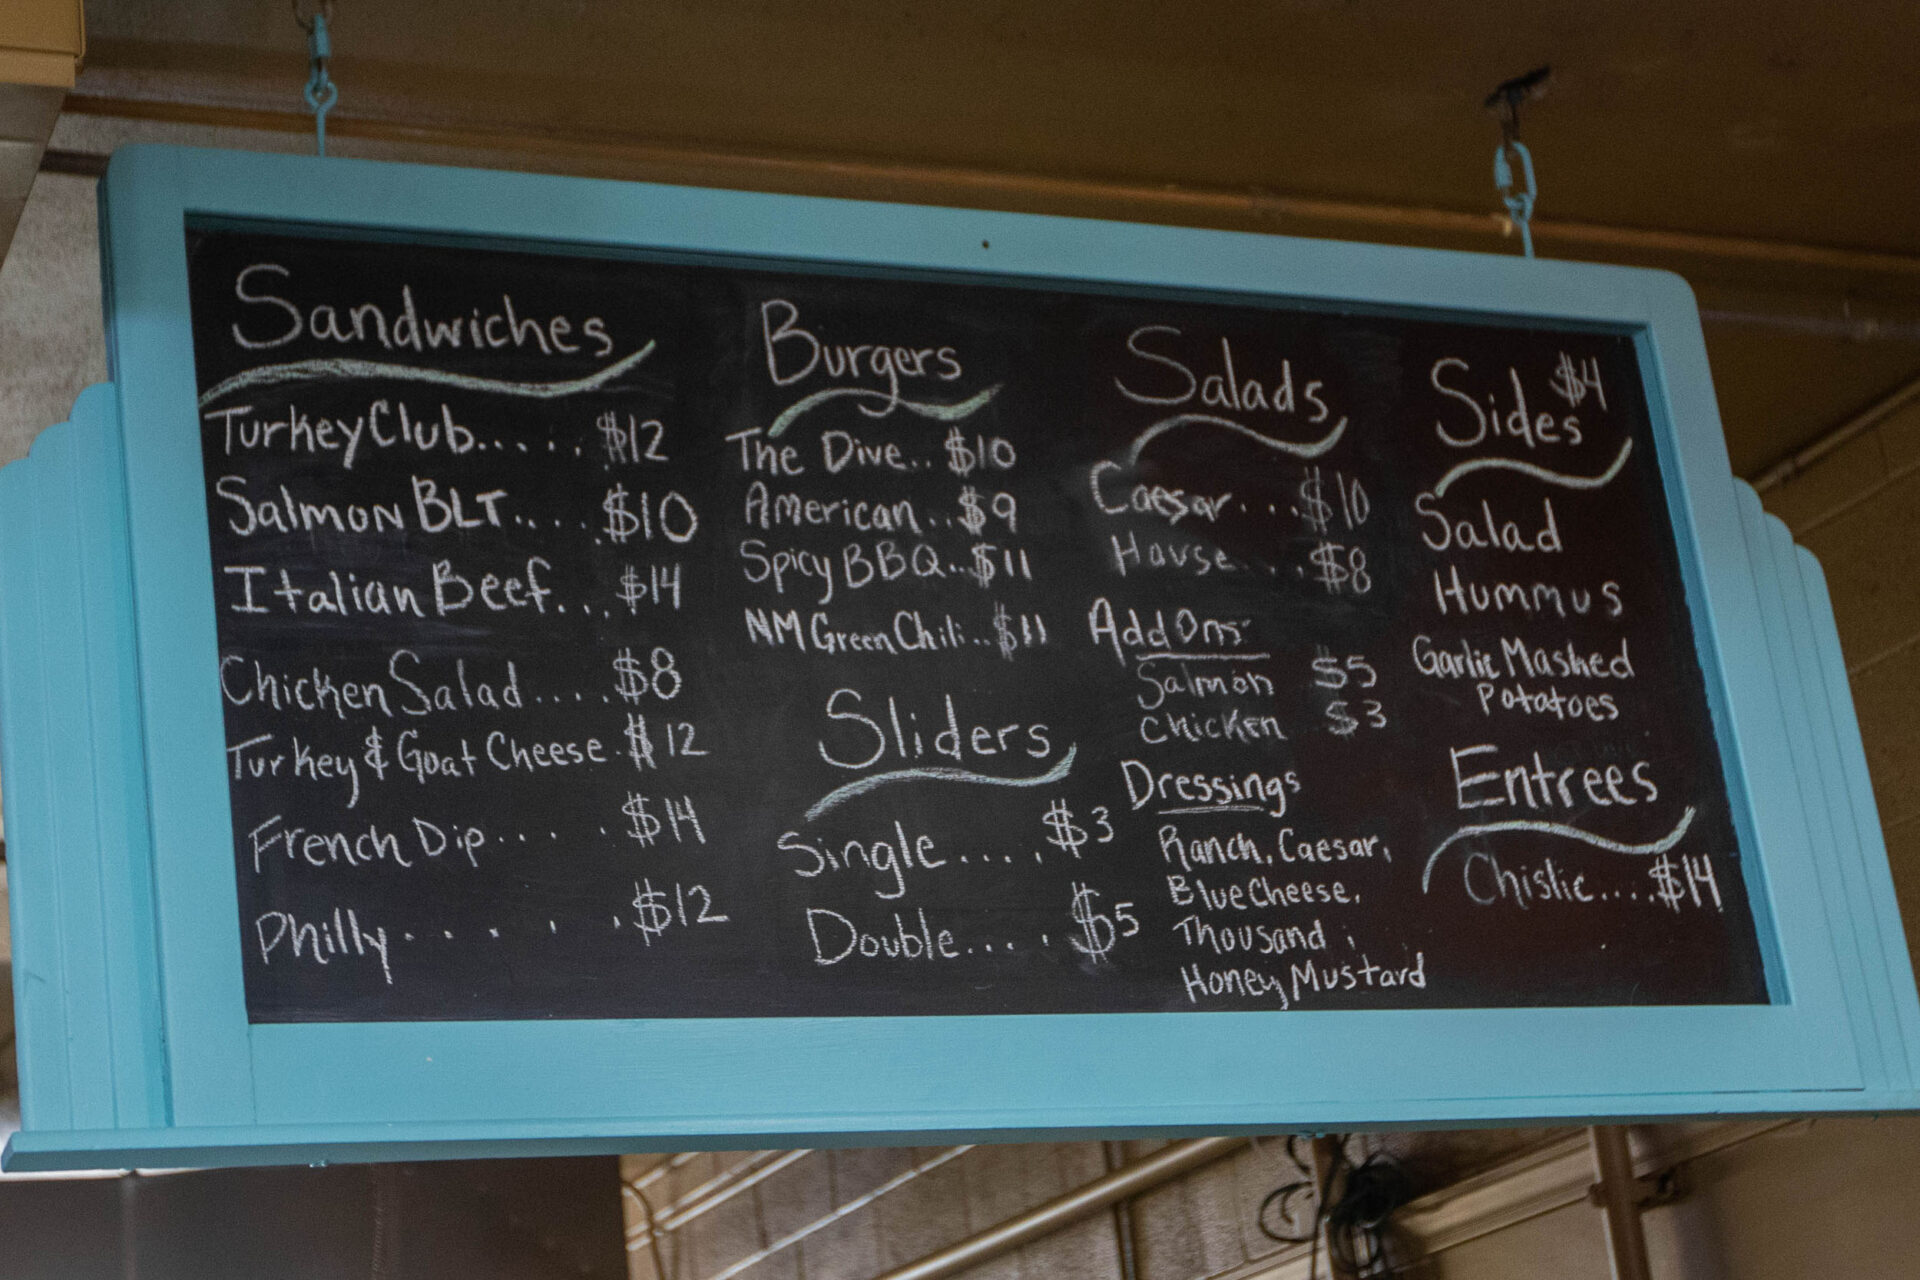 Sandwiches
Turkey Club..... $12
Salmon BLT..... $10
Italian Beef... $14
Chicken Salad.... $8
Turkey & Goat Cheese. $12
French Dip.... $14
Philly..... $12
Burgers
The Dive.. $10
American.. $9
Spicy BBQ.. $11
NM Green Chili.. $11
Sliders
Single.... $3
Double.... $5
Salads
Caesar... $10
House... $8
Add Ons:
Salmon $5
Chicken $3
Dressings
Ranch, Caesar,
Blue Cheese,
Thousand,
Honey Mustard
Sides $4
Salad
Hummus
Garlic Mashed
Potatoes
Entrees
Chislic.... $14